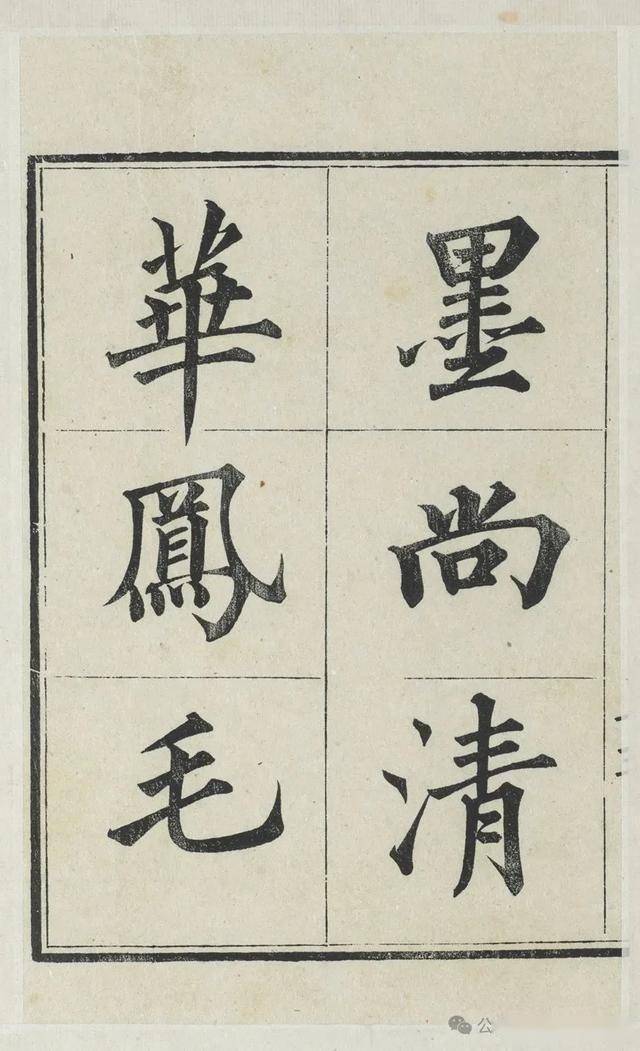 墨尚清
華鳳毛
公